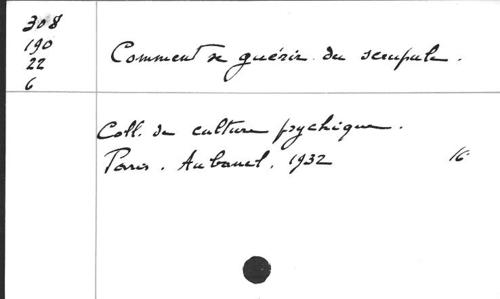 308
190
22
6
Comment se guérir du scrupule.
Coll. de culture psychique.
Paris. Aubanel. 1932 16